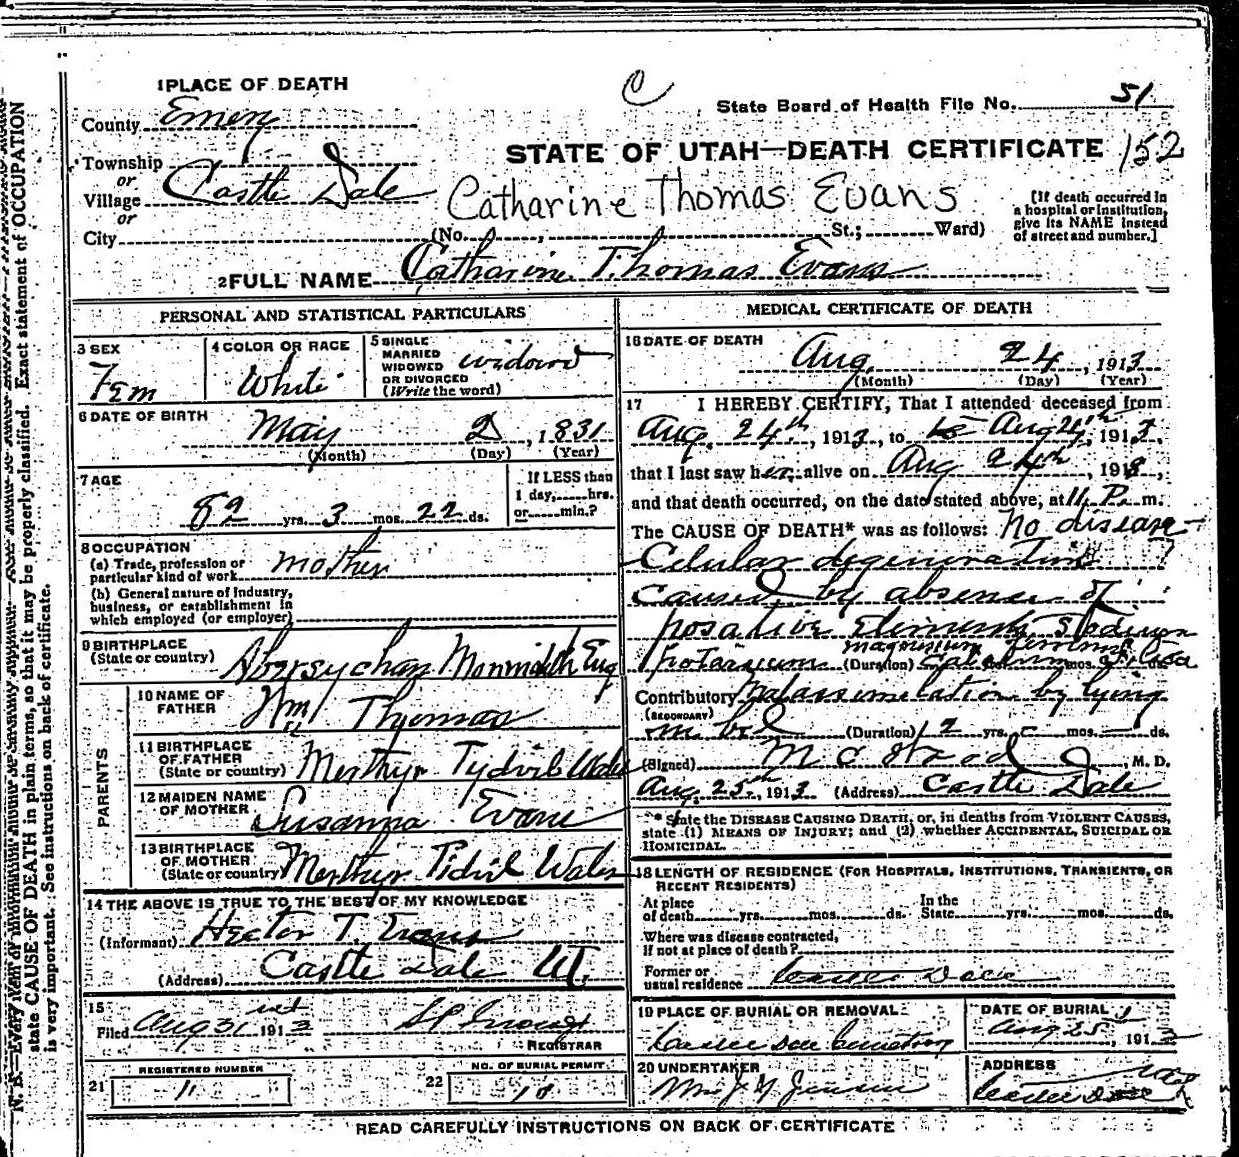 1 PLACE OF DEATH
C
State Board of Health File No. 51
County Emery
STATE OF UTAH—DEATH CERTIFICATE 152
Township
or
Village Castle Dale
or
Catharine Thomas Evans
[If death occurred in
a hospital or institution,
give its NAME instead
of street and number.]
City (No. , St.; Ward)
2 FULL NAME Catharine Thomas Evans
PERSONAL AND STATISTICAL PARTICULARS
3 SEX
Fem
4 COLOR OR RACE
White
5 SINGLE
MARRIED
WIDOWED
OR DIVORCED
(Write the word)
widow
6 DATE OF BIRTH
May 2, 1831
(Month) (Day) (Year)
7 AGE
82 yrs. 3 mos. 22 ds.
If LESS than
1 day, hrs.
or min.?
8 OCCUPATION
(a) Trade, profession or
particular kind of work mother
(b) General nature of Industry,
business, or establishment in
which employed (or employer)
9 BIRTHPLACE
(State or country) Abersychan Monmouth Eng
PARENTS
10 NAME OF
FATHER Wm Thomas
11 BIRTHPLACE
OF FATHER
(State or country) Merthyr Tydvil Wales
12 MAIDEN NAME
OF MOTHER Susanna Evans
13 BIRTHPLACE
OF MOTHER
(State or country) Merthyr Tidvil Wales
14 THE ABOVE IS TRUE TO THE BEST OF MY KNOWLEDGE
(Informant) Hector T. Evans
(Address) Castle Dale Ut.
15
Filed Aug 31st 1913
REGISTRAR
21 REGISTERED NUMBER
11
22 NO. OF BURIAL PERMIT
10
MEDICAL CERTIFICATE OF DEATH
16 DATE OF DEATH
Aug. 24, 1913
(Month) (Day) (Year)
17 I HEREBY CERTIFY, That I attended deceased from
Aug. 24th, 1913, to Aug 24th, 1913,
that I last saw her alive on Aug 24th, 1913,
and that death occurred, on the date stated above, at 11 P. m.
The CAUSE OF DEATH* was as follows: No disease
Celular degeneration
caused by absence of
posative elements Sodium
magnesium ferrum
Potassium (Duration) Calcium mos. Silica ds.
Contributory Malassimulation by lying
(SECONDARY)
in bed (Duration) 2 yrs. mos. ds.
(Signed) , M. D.
Aug 25th, 1913 (Address) Castle Dale
* State the DISEASE CAUSING DEATH, or, in deaths from VIOLENT CAUSES,
state (1) MEANS OF INJURY; and (2) whether ACCIDENTAL, SUICIDAL OR
HOMICIDAL.
18 LENGTH OF RESIDENCE (FOR HOSPITALS, INSTITUTIONS, TRANSIENTS, OR
RECENT RESIDENTS)
At place
of death yrs. mos. ds.
In the
State yrs. mos. ds.
Where was disease contracted,
if not at place of death?
Former or
usual residence Castle Dale
19 PLACE OF BURIAL OR REMOVAL
Castle Dale Cemetery
DATE OF BURIAL
Aug 25, 1913
20 UNDERTAKER
Jensen
ADDRESS
Castle Dale
READ CAREFULLY INSTRUCTIONS ON BACK OF CERTIFICATE
N. B.—Every item of information
state CAUSE OF DEATH in plain terms, so that it may be properly classified. Exact statement of OCCUPATION
is very important. See instructions on back of certificate.